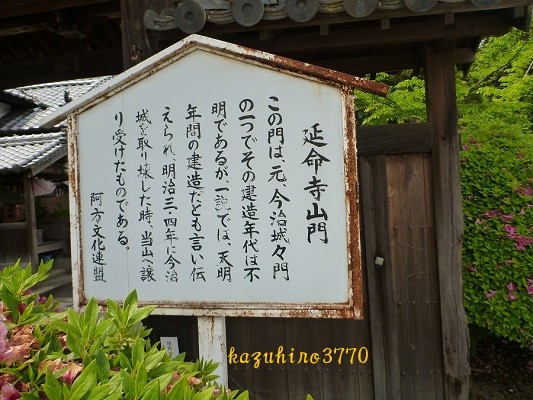 延命寺山門
この門は、元、今治城々門
の一つでその建造年代は不
明であるが一説では、天明
年間の建造だとも言い伝
えられ、明治三・四年に今治
城を取り壊した時、当山へ譲
り受けたものである。
阿方文化連盟
kazuhiro3770